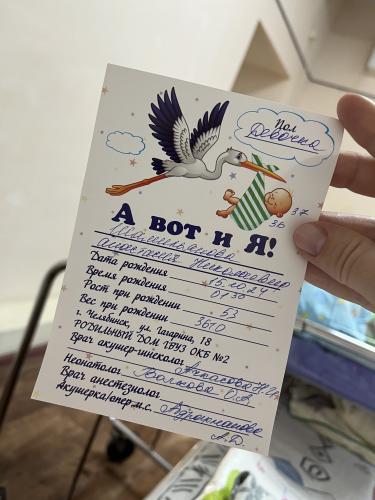 Пол
Девочка
А вот и Я!
37
36
Николаевна
Дата рождения 15.10.24
Время рождения 0730
Рост при рождении 53
Вес при рождении 3670
г. Челябинск, ул. Гагарина, 18
РОДИЛЬНЫЙ ДОМ ГБУЗ ОКБ №2
Врач акушер-гинеколог
Неонатолог Волкова О.В.
Врач анестезиолог
Акушерка/опер м.с.
А.Д.